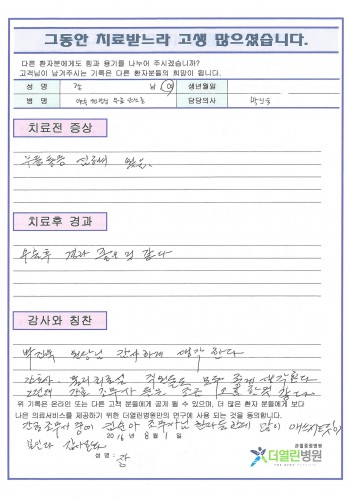 그동안 치료받느라 고생 많으셨습니다.
다른 환자분에게도 힘과 용기를 나누어 주시겠습니까?
고객님이 남겨주시는 기록은 다른 환자분들의 희망이 됩니다.
성 명 강 남 여 생년월일
병 명 무릎 담당의사 박진욱
치료전 증상
무릎통증 심하게 있음.
치료후 경과
수술후 결과 좋은 것 같다
감사와 칭찬
박진욱 원장님 감사하게 생각 한다
간호사. 물리치료실 직원들도 모두 좋게 생각한다
간호 조무사
위 기록은 온라인 또는 다른 고객 분들에게 공개 될 수 있으며, 더 많은 환자 분들에게 보다
나은 의료서비스를 제공하기 위한 더열린병원만의 연구에 사용 되는 것을 동의합니다.
간호조무사 중에 조무사님 많이
감사
2016 년 8 월 1 일
성 명 : 강
관절중점병원
더열린병원